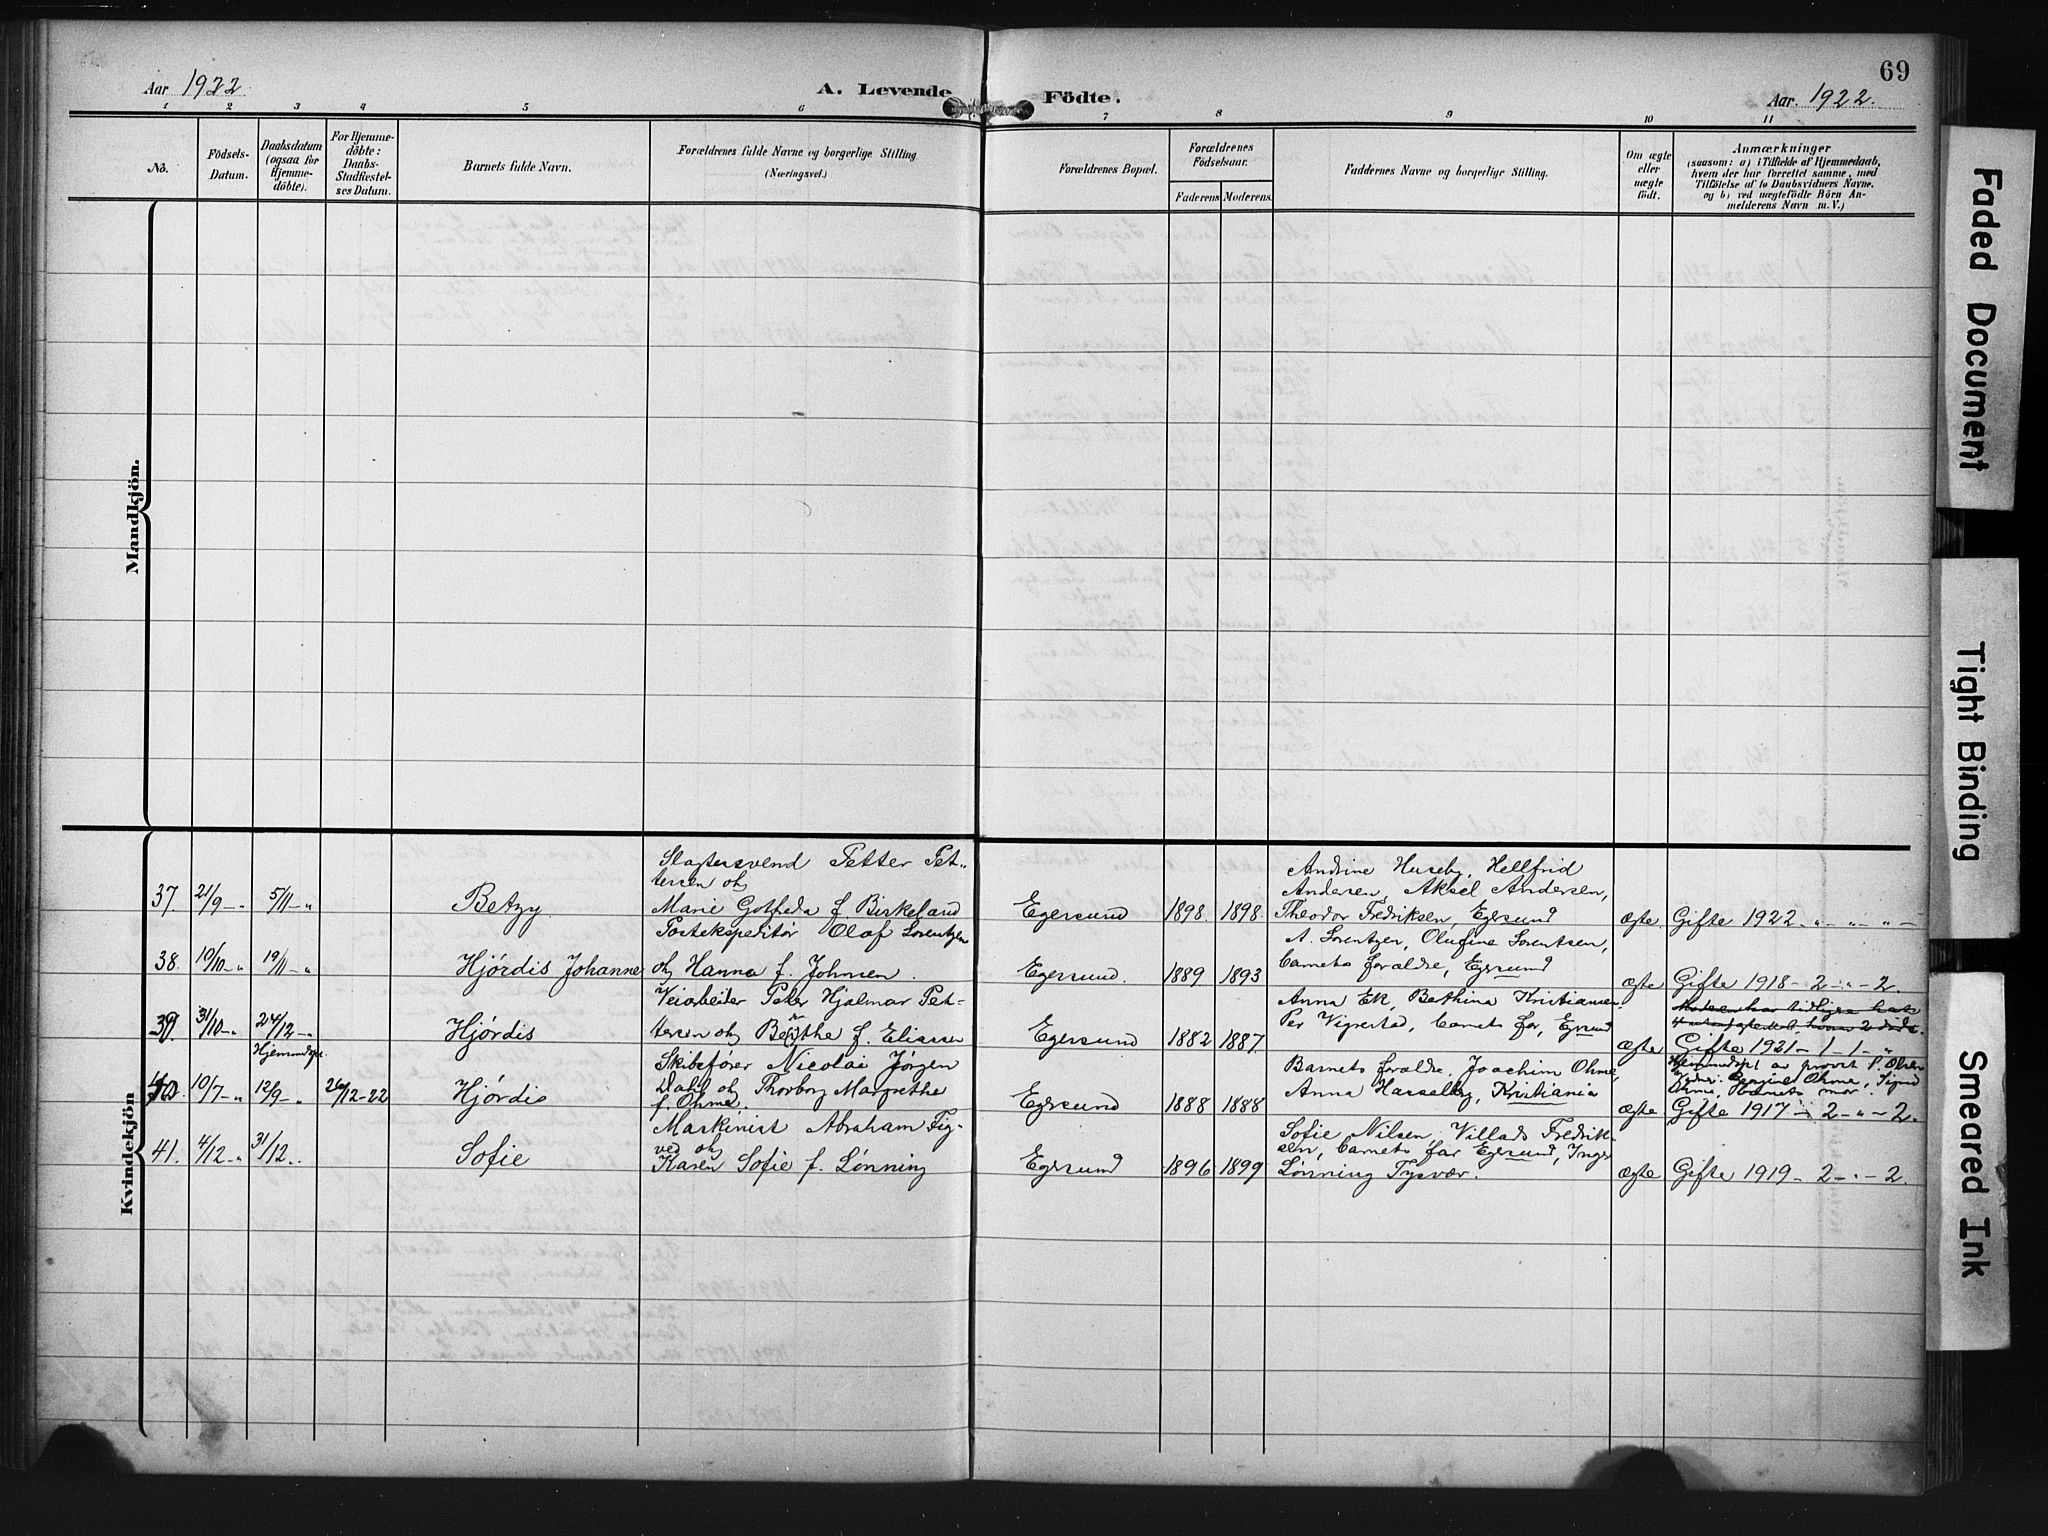 69
Aar 1922. A. Levende Födte. Aar. 1922.
1 2 3 4 5 6 7 8 9 10 11
No.
Födsels-
Datum.
Daabsdatum
(ogsaa for
Hjemme-
döbte).
For Hjemme-
döbte:
Daabs-
Stadfæstel-
ses Datum.
Barnets fulde Navn.
Forældrenes fulde Navne og borgerlige Stilling
(Næringsvei.)
Forældrenes Bopæl.
Forældrenes
Födselsaar.
Faderens Moderens.
Faddernes Navne og borgerlige Stilling.
Om ægte
eller
uægte
födt.
Anmærkninger
(saasom: a) i Tilfælde af Hjemmedaab,
hvem der har forrettet samme, med
Tilföielse af to Daabsvidners Navne,
og b) ved uægtefödte Börn An-
melderens Navn m. V.)
Mandkjön.
Kvindekjön
37. 21/9 - „ 5/11 - „
Betzy.
Slagtersvend Petter Pet-
tersen og
Marie Gotfreda f. Birkeland
Egersund 1898. 1898.
Andrine Huseby, Hellfrid
Andersen, Aksel Andersen,
Theodor Fredriksen, Egersund
ægte. Gifte 1922 - „ - „ - „ -
38. 10/10 - „ 19/11 - „
Hjørdis Johanne
Postekspeditør Olaf Lorentzen
og Hanna f. Johnsen.
Egersund 1889 1893
A. Lorentzen, Olufine Lorentsen,
barnets forældre, Egersund
ægte Gifte 1918 - 2 - „ - 2.
39. 31/10 - „ 24/12 - „
Hjørdis
Veiarbeider Peter Hjalmar Pet-
tersen og Berthe f. Eliassen
Egersund 1882 1887.
Anna Ek, Bethina Kristiansen,
Per Vigrestad, barnets far, Egersund
Moderen har tidligere havt
ægte Gifte 1921 - 1 - 1 - „
40 10/7 - „ Hjemmedøpt. 12/9 - „ 26/12-22
Hjørdis
Skibsfører Nicolai Jørgen
Dahl og Thorborg Margrethe
f. Ohme.
Egersund 1888 1888
Barnets forældre, Joachim Ohme,
Anna Hasselberg, Kristiania
Hjemmedøpt av provst P. Olsen
Ohme, Barnets mor.
ægte. Gifte 1917 - 2 - „ - 2.
41. 4/12 - „ 31/12 ..
Sofie
Maskinist Abraham Fig-
ved og
Karen Sofie f. Lønning
Egersund 1896 1899
Sofie Nilsen, Villads Fredrik-
sen, barnets far Egersund, Inger
Lønning Tysvær.
ægte Gifte 1919 - 2 - „ - 2.
Faded Document
Tight Binding
Smeared Ink